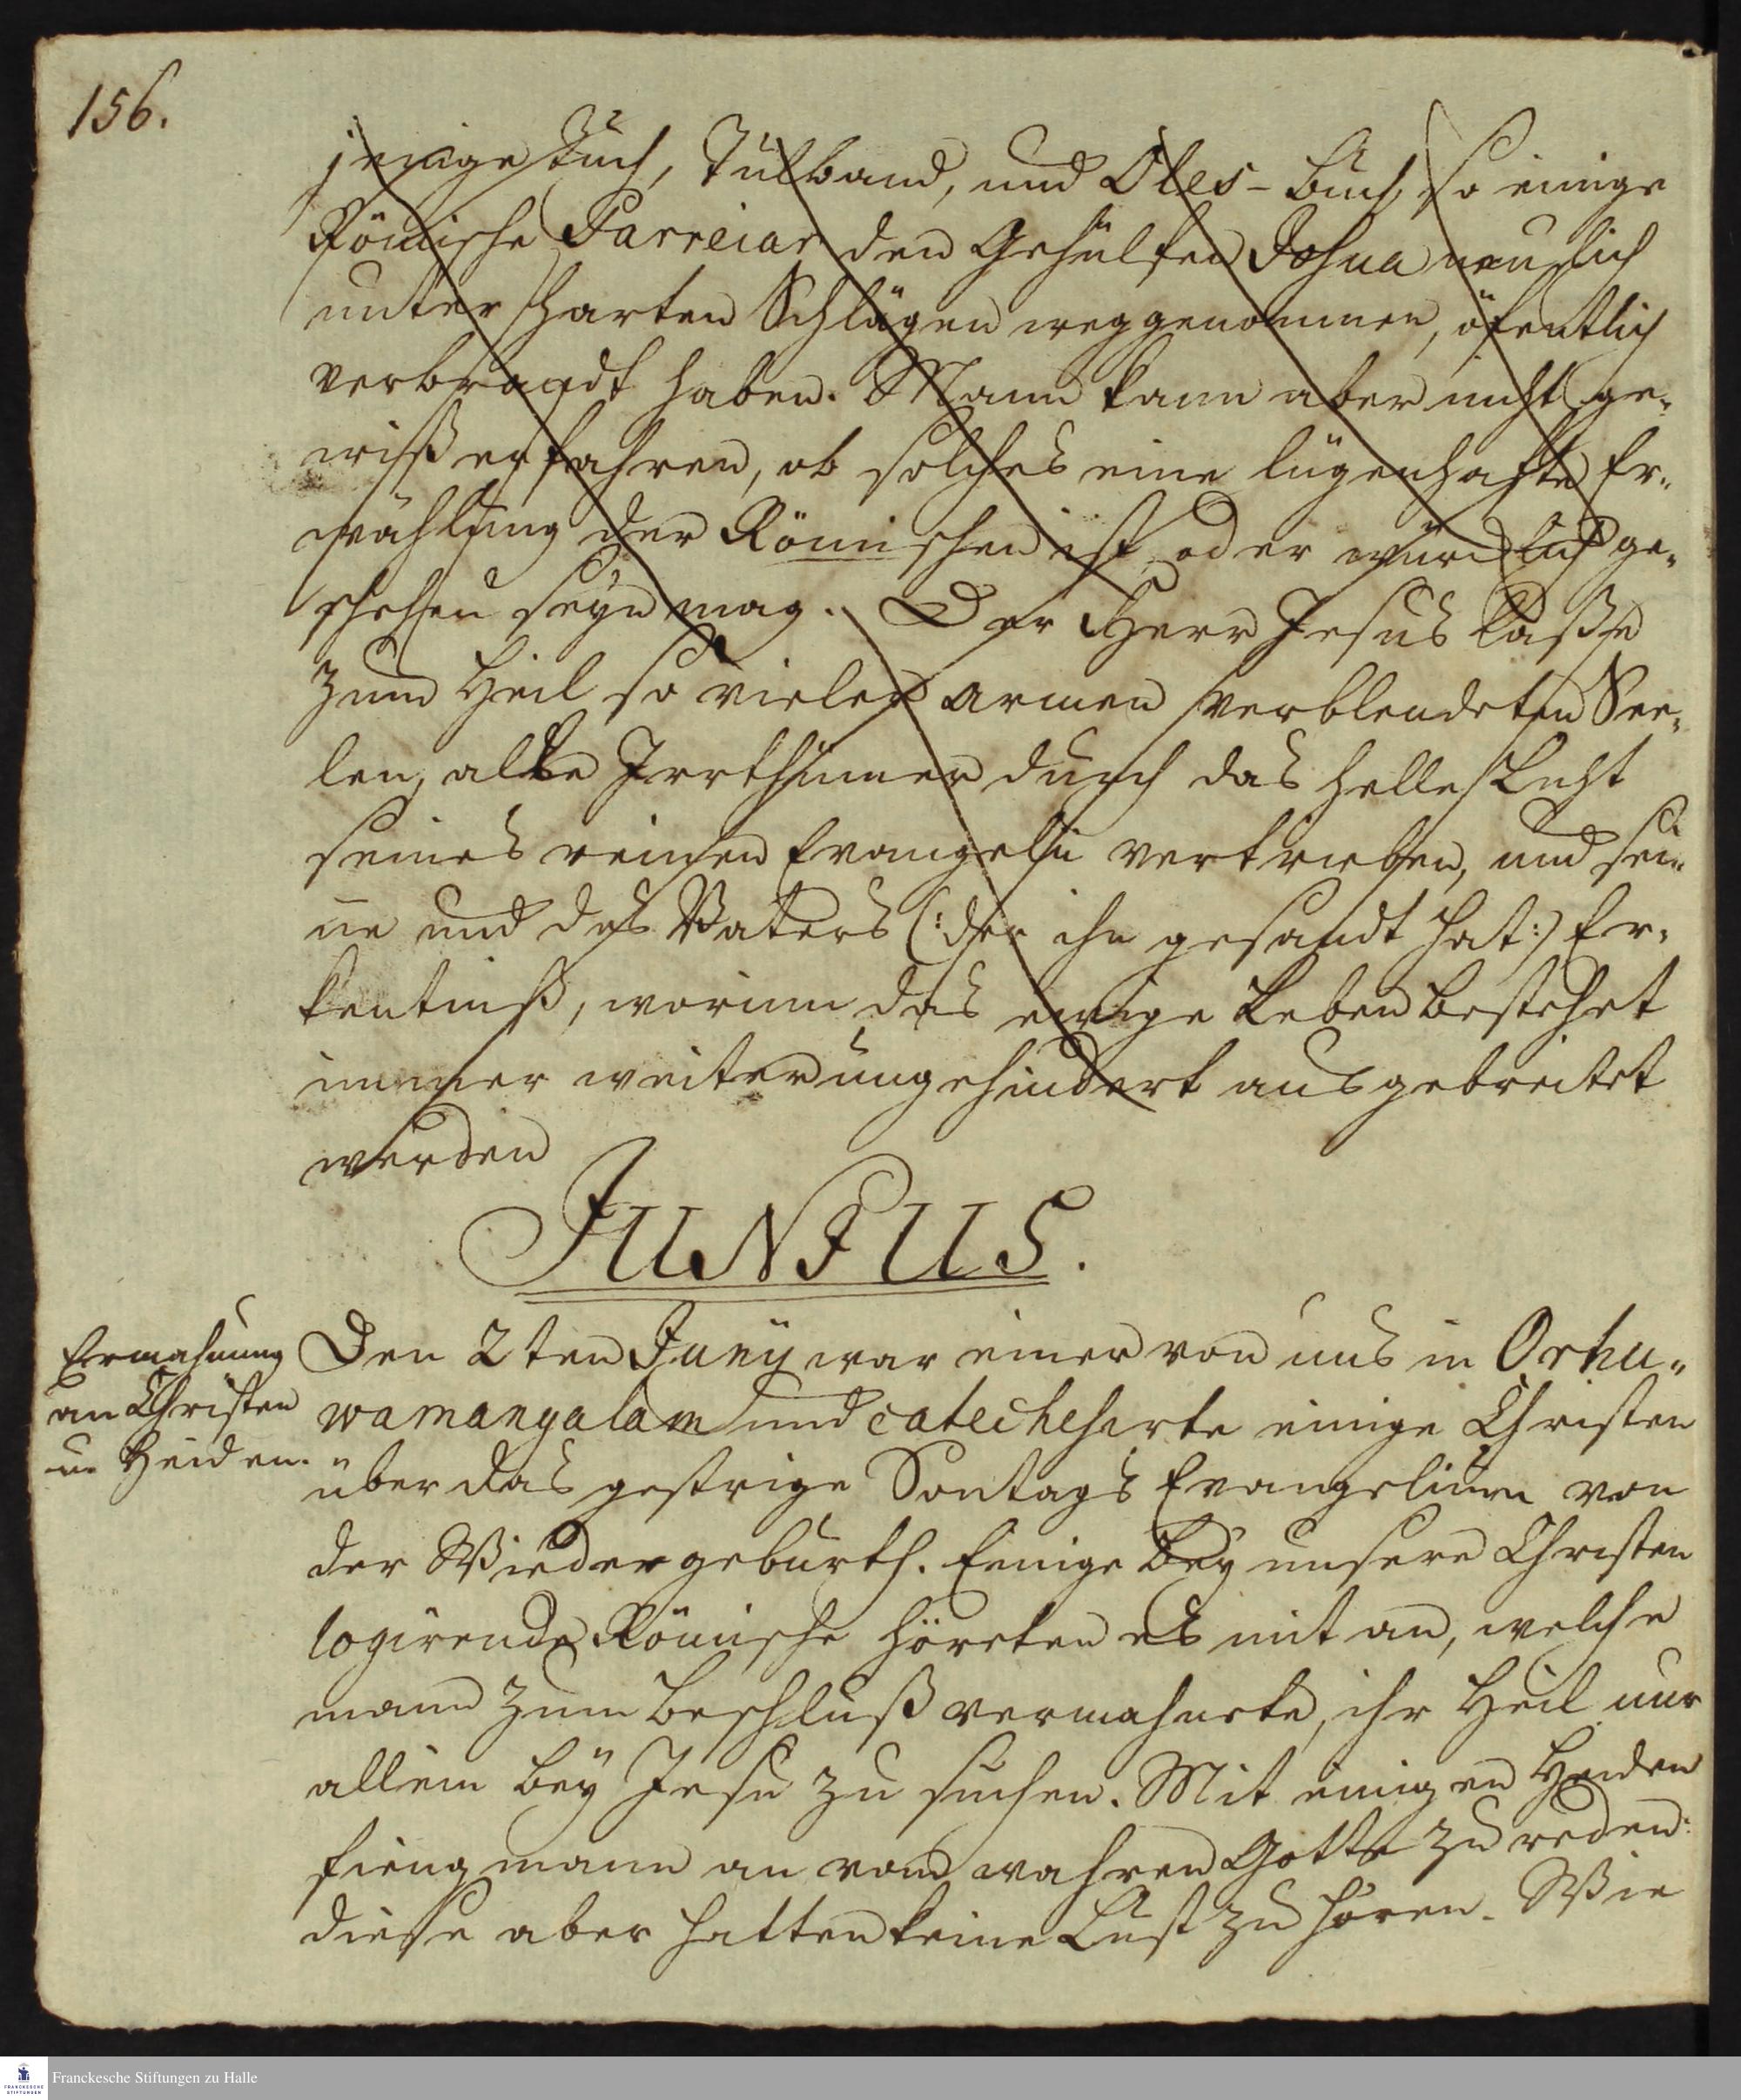 156.
jenige Tuch, Tulband, und Oles-Buch, so einige
Römische Parreiar den Gehülfen Josua neulich
unter harten Schlägen weggenommen, öfentlich
verbrandt haben. Mann kann aber nicht ge-
wiß erfahren, ob solches eine lügenhafte Er-
wählung der Römischen ist, oder würcklich ge-
schehen seyn mag. Der Herr Jesus laße
zum Heil so vieler armen verblendeten See-
len, alle Irrthümer durch das helle Licht
seines reinen Evangelii vertrieben, und sei-
ne und des Vaters (: der ihn gesandt hat :) Er-
kentniß, worinn das ewige Leben bestehet
immer weiter ungehindert ausgebreitet
werden
JUNIUS.
Ermahnung
an Christen
u. Heiden.
Den 2ten Junii war einer von uns in Orhu-
wamangalam und catechesirte einige Christen
über das gestrige Sontags Evangelium von
der Wiedergeburth. Einige bey unsern Christen
logirende Römische höreten es mit an, welche
mann zum Beschluß vermahnete, ihr Heil nur
allein bey Jesu zu suchen. Mit einigen Heiden
fieng mann an vom wahren Gotte zu reden:
diese aber hatten keine Lust zu hören. Wie
Franckesche Stiftungen zu Halle
FRANCKESCHE
STIFTUNGEN